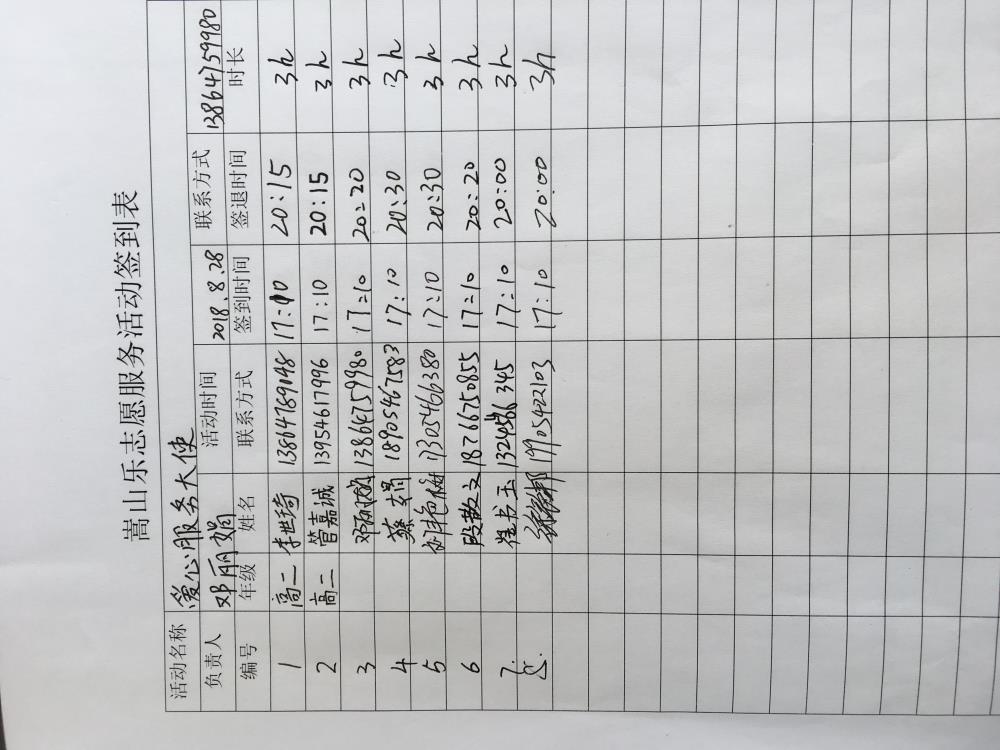 嵩山乐志愿服务活动签到表
活动名称 爱心服务大使
负责人 邓丽娟 活动时间 2018.8.28 联系方式 13864759980
编号 年级 姓名 联系方式 签到时间 签退时间 时长
1 高二 李世琦 13864789148 17:10 20:15 3h
2 高二 管嘉诚 13954617996 17:10 20:15 3h
3 13864759980 17:10 20:20 3h
4 蔡娟 18905467583 17:10 20:30 3h
5 刘艳梅 17305466380 17:10 20:30 3h
6 段散文 18766750855 17:10 20:20 3h
7. 崔书玉 17:10 20:00 3h
8. 19905422103 17:10 20:00 3h